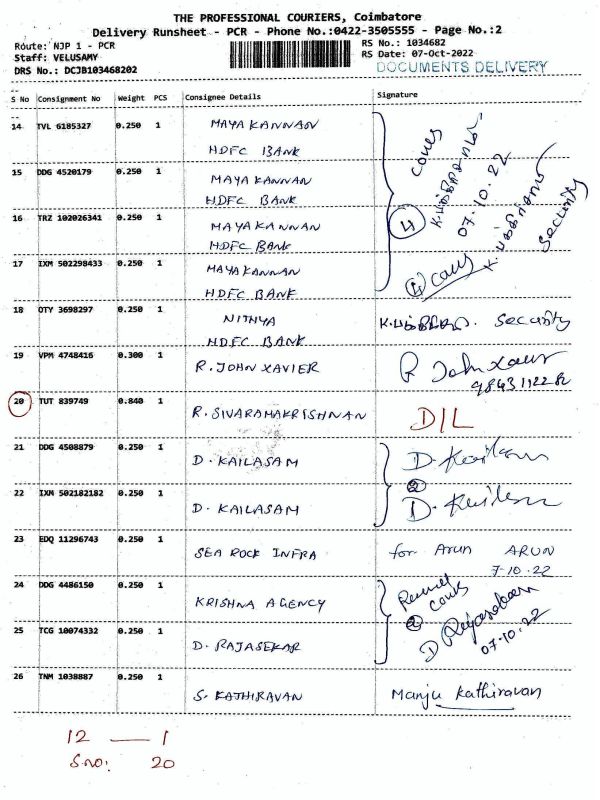 THE PROFESSIONAL COURIERS, Coimbatore
Delivery Runsheet - PCR - Phone No.:0422-3505555 - Page No.:2
Route: NJP 1 - PCR
RS No.: 1034682
Staff: VELUSAMY
RS Date: 07-Oct-2022
DRS No.: DCJB103468202
DOCUMENTS DELIVERY
S No Consignment No Weight PCS Consignee Details Signature
14 TVL 6185327 0.250 1 MAYAKANNAN
HDFC BANK
15 DDG 4520179 0.250 1 MAYAKANNAN
HDFC BANK
16 TRZ 102026341 0.250 1 MAYAKANNAN
HDFC BANK
17 IXM 502298433 0.250 1 MAYAKANNAN
HDFC BANK
4 covers
07.10.22
4 covers
Security
18 OTY 3698297 0.250 1 NITHYA
HDFC BANK
Security
19 VPM 4748416 0.300 1 R. JOHN XAVIER
98431 1122 82
20 TUT 839749 0.840 1 R. SIVARAMAKRISHNAN D/L
21 DDG 4508879 0.250 1 D. KAILASAM D. Kailasam
2
22 IXM 502182182 0.250 1 D. KAILASAM D. Kailasam
23 EDQ 11296743 0.250 1 SEA ROCK INFRA for Arun ARUN
7-10.22
24 DDG 4486150 0.250 1 KRISHNA AGENCY
2
25 TCG 10074332 0.250 1 D. RAJASEKAR
07.10.22
26 TNM 1038887 0.250 1 S. KATHIRAVAN Manju Kathiravan
12 — 1
S.no: 20